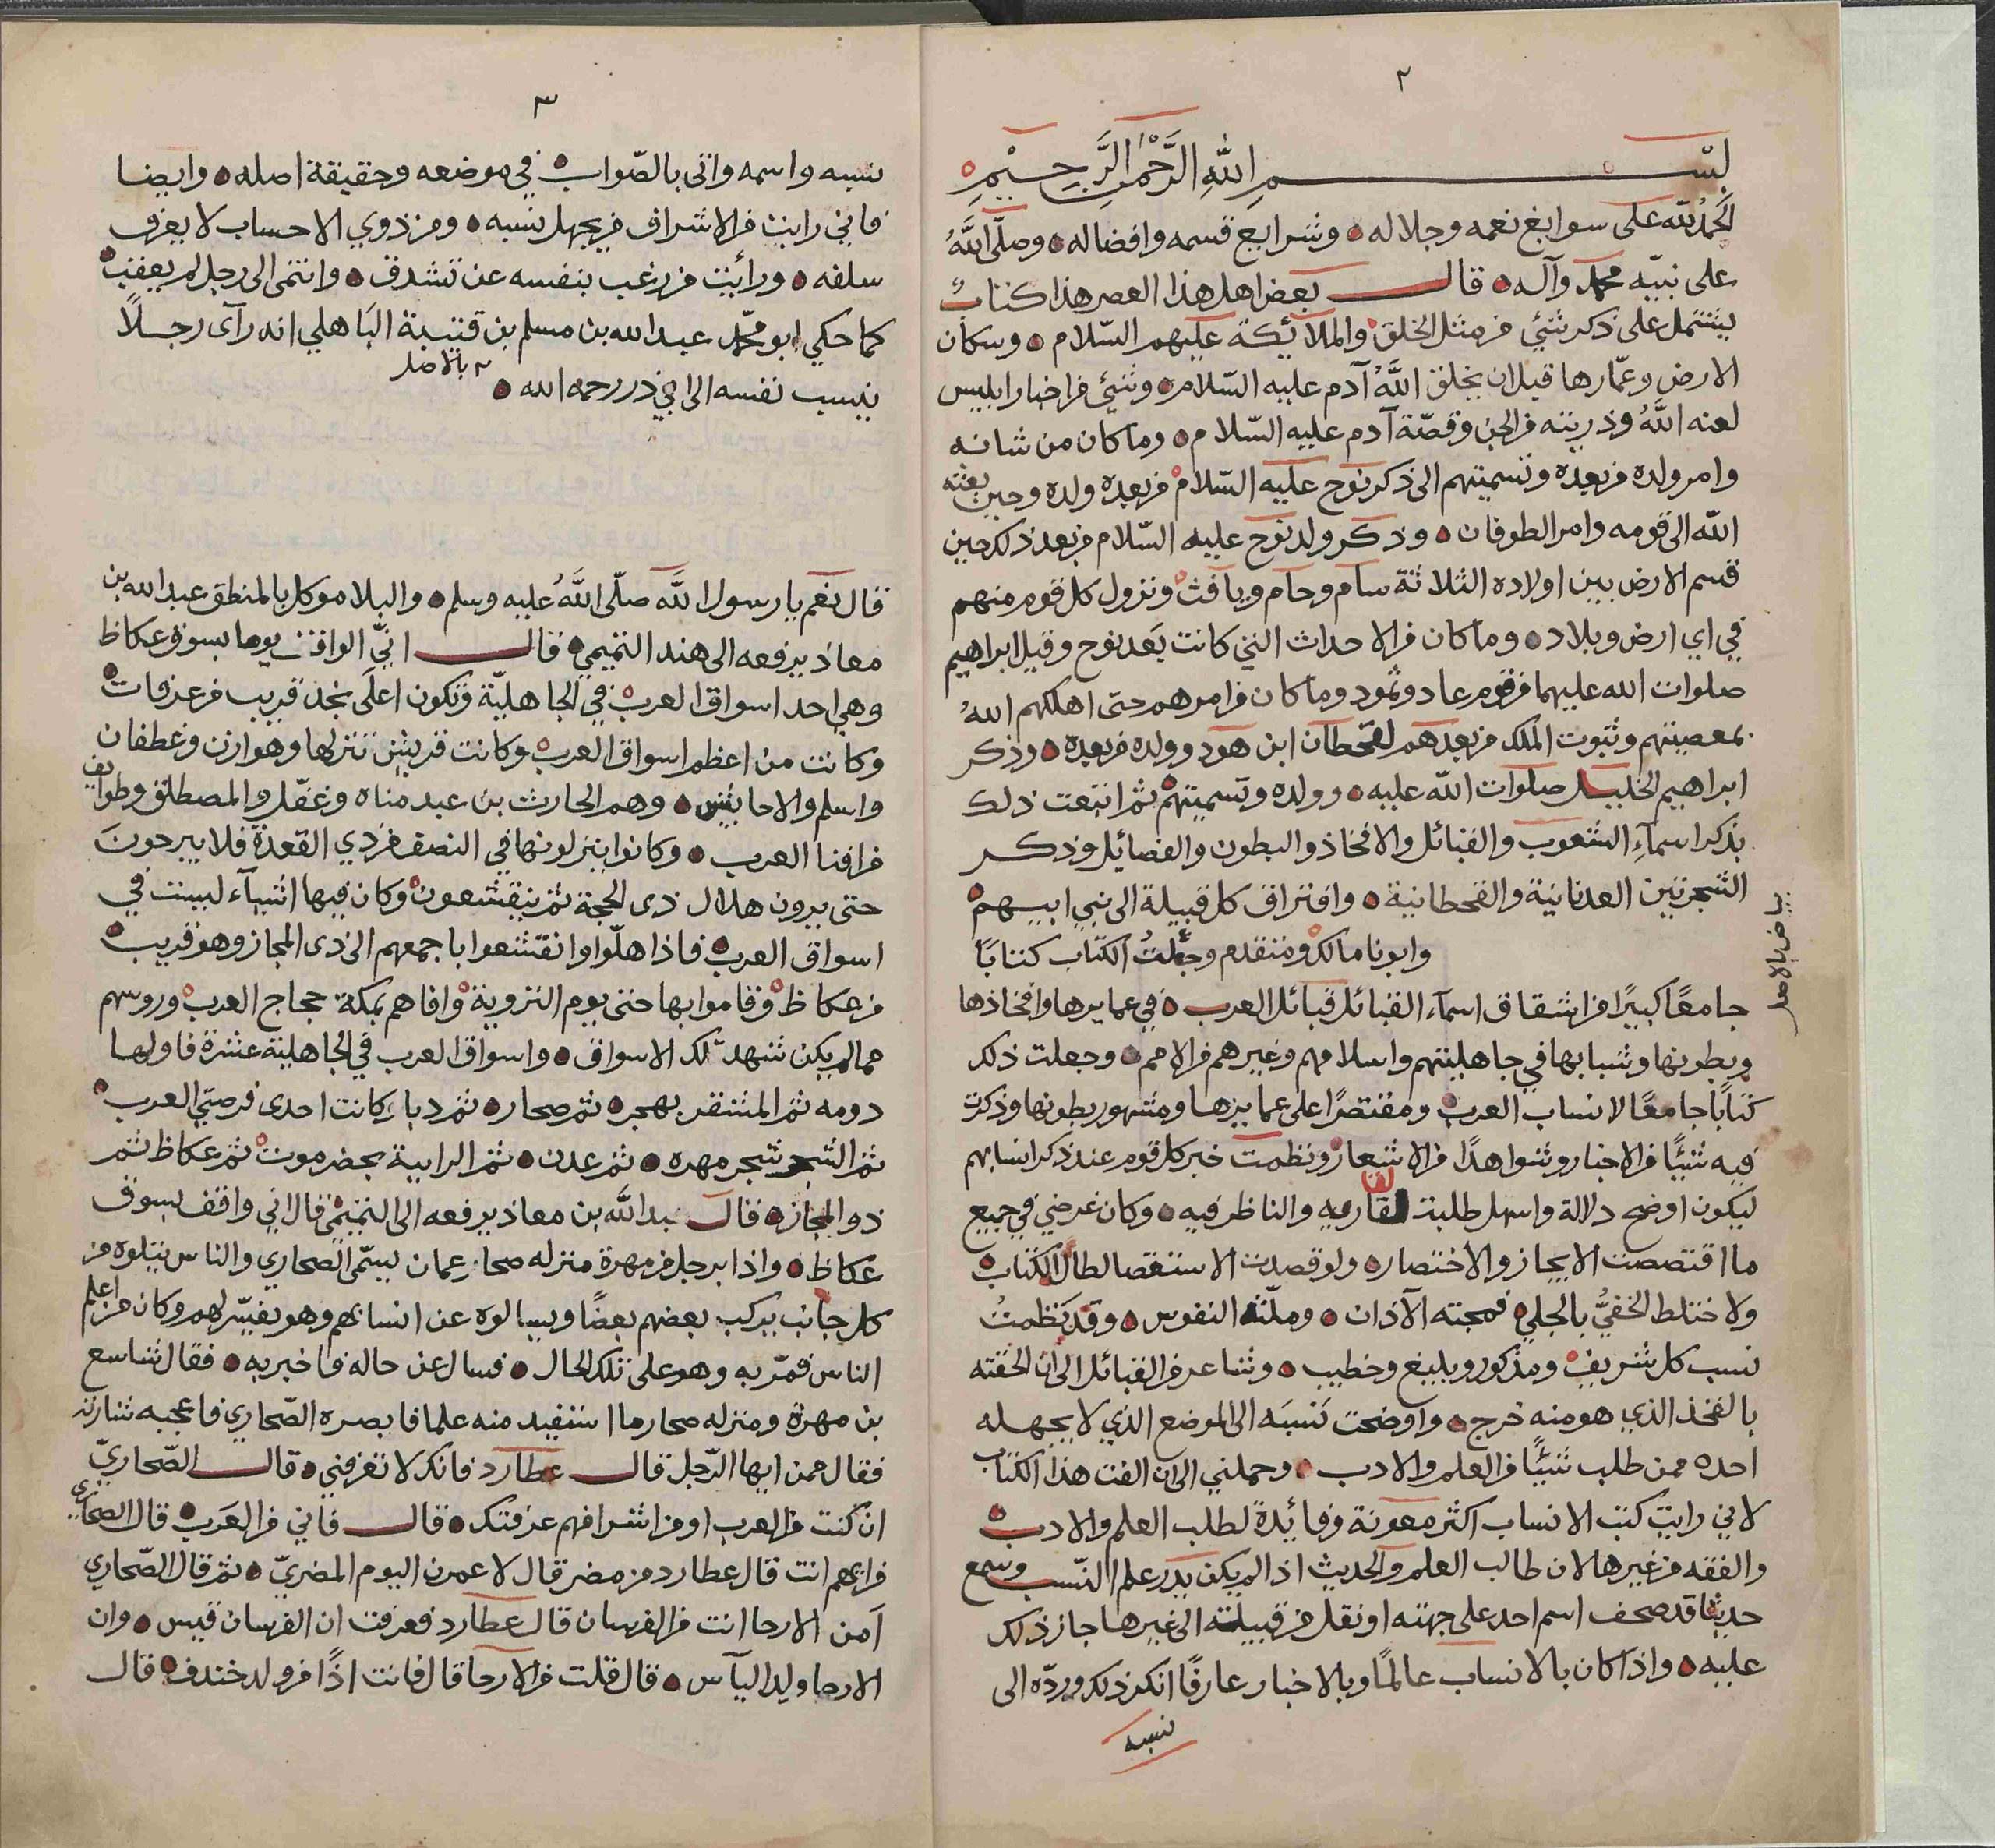 ٢
بسم الله الرَّحْمٰن الرَّحِيْمِ
الحمدُ لله على سوابغ نعمه وجلاله وشرايع قسمه وافضاله وصلّى اللهُ
على نبيّه محمد وآله قال بعض اهل هذا العصر هذا كتابٌ
يشتمل على ذكر شئي من مثل الخلق والملائكة عليهم السّلام وسكان
الارض وعمّارها قبل ان يخلق اللهُ آدم عليه السّلام وشئي من اخبار ابليس
لعنه اللهُ وذريته من الجن وقصّة آدم عليه السّلام وما كان من شانه
وامر ولده من بعده وتسميتهم الى ذكر نوح عليه السّلام من بعده ولده وحين بعثه
الله الى قومه وامر الطوفان وذكر ولد نوح عليه السّلام من بعد ذلك حين
قسم الارض بين اولاده الثلاثة سام وحام ويافث ونزول كل قوم منهم
في اي ارض وبلاد وما كان من الاحداث التي كانت بَعد نوح وقبل ابراهيم
صلوات الله عليهما من قوم عاد وثمود وما كان من امرهم حتى اهلكهم اللهُ
بمعصيتهم وثبوت الملك من بعدهم لقحطان ابن هود وولده من بعده وذكر
ابراهيم الخليل صلوات الله عليه وولده وتسميتهم ثم اتبعت ذلك
بذكر اسمآءِ الشعوب والقبائل والافخاذ والبطون والفصائل وذكر
الشجرتين العدنانية والقحطانية وافتراق كل قبيلة الى بني ابيهم
وابونا مالك ومن تقدم وجعلتُ الكتاب كتابًا
بياض بالاصل
جامعًا كبيرًا من اشقاق اسمآء القبائل قبائل العرب في عمايرها وافخاذها
وبطونها وشبابها في جاهليتهم واسلامهم وغيرهم من الامم وجعلت ذلك
كتابًا جامعًا لانساب العرب ومقتصرًا على عمايرها ومشهور بطونها وذكرت
فيه شيئًا من الاخبار وشواهدًا من الاشعار ونظمت خبر كل قوم عند ذكر انسابهم
ليكون اوضح دلالة واسهل طلبت لقاريه والناظر فيه وكان غرضي في جميع
ما اقتصصت الايجاز والاختصار ولو قصدت الاستقصا لطال الكتاب
ولاختلط الخفيُّ بالجلي فمجته الآذان وملّته النفوس وقد نظمتُ
نسب كل شريف ومذكور وبليغ وخطيب وشاعر من القبائل الى ان الحقته
بالفخذ الذي هو منه خرج واوضحت نَسَبَه الى الموضع الذي لا يجهله
احد ممن طلب شيئًا من العلم والادب وحملني الى ان الفت هذا الكتاب
لاني رايت كتب الانساب اكثر معونة وفائدة لطلب العلم والادب
والفقه من غيرها لان طالب العلم والحديث اذا لم يكن يدر علم النّسب وسمع
حديثا قد صحف اسم احد على جهته او نقل من قبيلته الى غيرها جاز ذلك
عليه واذا كان بالانساب عالمًا وبالاخبار عارفًا انكر ذلك وردّه الى
نسبه
٣
نسبه واسمه واتى بالصّواب في موضعه وحقيقة اصله وايضا
فاني رايت من الاشراف من يجهل نسبه ومن ذوي الاحساب لا يعرف
سلفه ورأيت من رغب بنفسه عن تشدق وانتمى الى رجل لم يعقب
كما حكي ابو محمّد عبد الله بن مسلم بن قتيبة البَاهلي انه رآى رجلًا
ينسب نفسه الى ابي ذر رحمه الله
بالاصل
قال نعم يا رسول الله صلّى اللهُ عليه وسلم والبلا موكل بالمنطق عبد الله بن
معاذ يرفعه الى هند التميمي قال انّي لواقف يوما بسوق عكاظ
وهي احد اسواق العرب في الجاهليّة وتكون اعلى نجد قريب من عرفات
وكانت من اعظم اسواق العرب وكانت قريش تنزلها وهوازن وغطفان
واسلم والاحابيش وهم الحارث بن عبد مناه وغفل والمصطلق وطوايف
من افنا العرب وكانوا ينزلونها في النصف من ذي القعدة فلا يبرحونَ
حتى يرون هلال ذى الحجة ثم ينقشعون وكان فيها اشيآء ليست في
اسواق العرب فاذا هلّوا وانقشعوا باجمعهم الى ذى المجاز وهو قريب
من عكاظ وقاموا بها حتى يوم التروية وافاهم بمكة حجاج العرب وروسهم
مما لم يكن شهد تلك الاسواق واسواق العرب في الجاهلية عشرة فاولها
دومه ثم المشقر بهجر ثم صحار ثم دبا وكانت احدى فرضتي العرب
ثم الشحر شحر مهره ثم عدن ثم الرابية بحضرموت ثم عكاظ ثم
ذو المجاز فقال عبد الله بن معاذ يرفعه الى التميمي قال اني واقف بسوق
عكاظ واذا برجل من مهرة منزله صحار عمان يسمّى الصحاري والناس يتلوه من
كل جانب يركب بعضهم بعضًا ويسالوه عن انسابهم وهو يفسّر لهم وكان من اعلم
الناس فمرّ به وهو على تلك الحال فسال عن حاله فاخبر به فقال شاسع
بن مهرة ومنزله صحار ما استفيد منه علما فابصره الصّحاري فاعجبه شارته
فقال ممن ايها الرّجل قال عطارد فانك لا تعرفني قال الصّحاريّ
ان كنت من العرب او من اشرافهم عرفتك قال فاني من العَرب قال الصحاري
من ايهم انت قال عطارد من مضر قال لاعمرن اليوم المضريّ ثم قال الصّحاري
آمن الارحا انت من الفرسان قال عطارد فعرفت ان الفرسان قيس وان
الارحا ولد اليآس قال قلت من الارحا قال فانت اذًا من ولد خندف قال